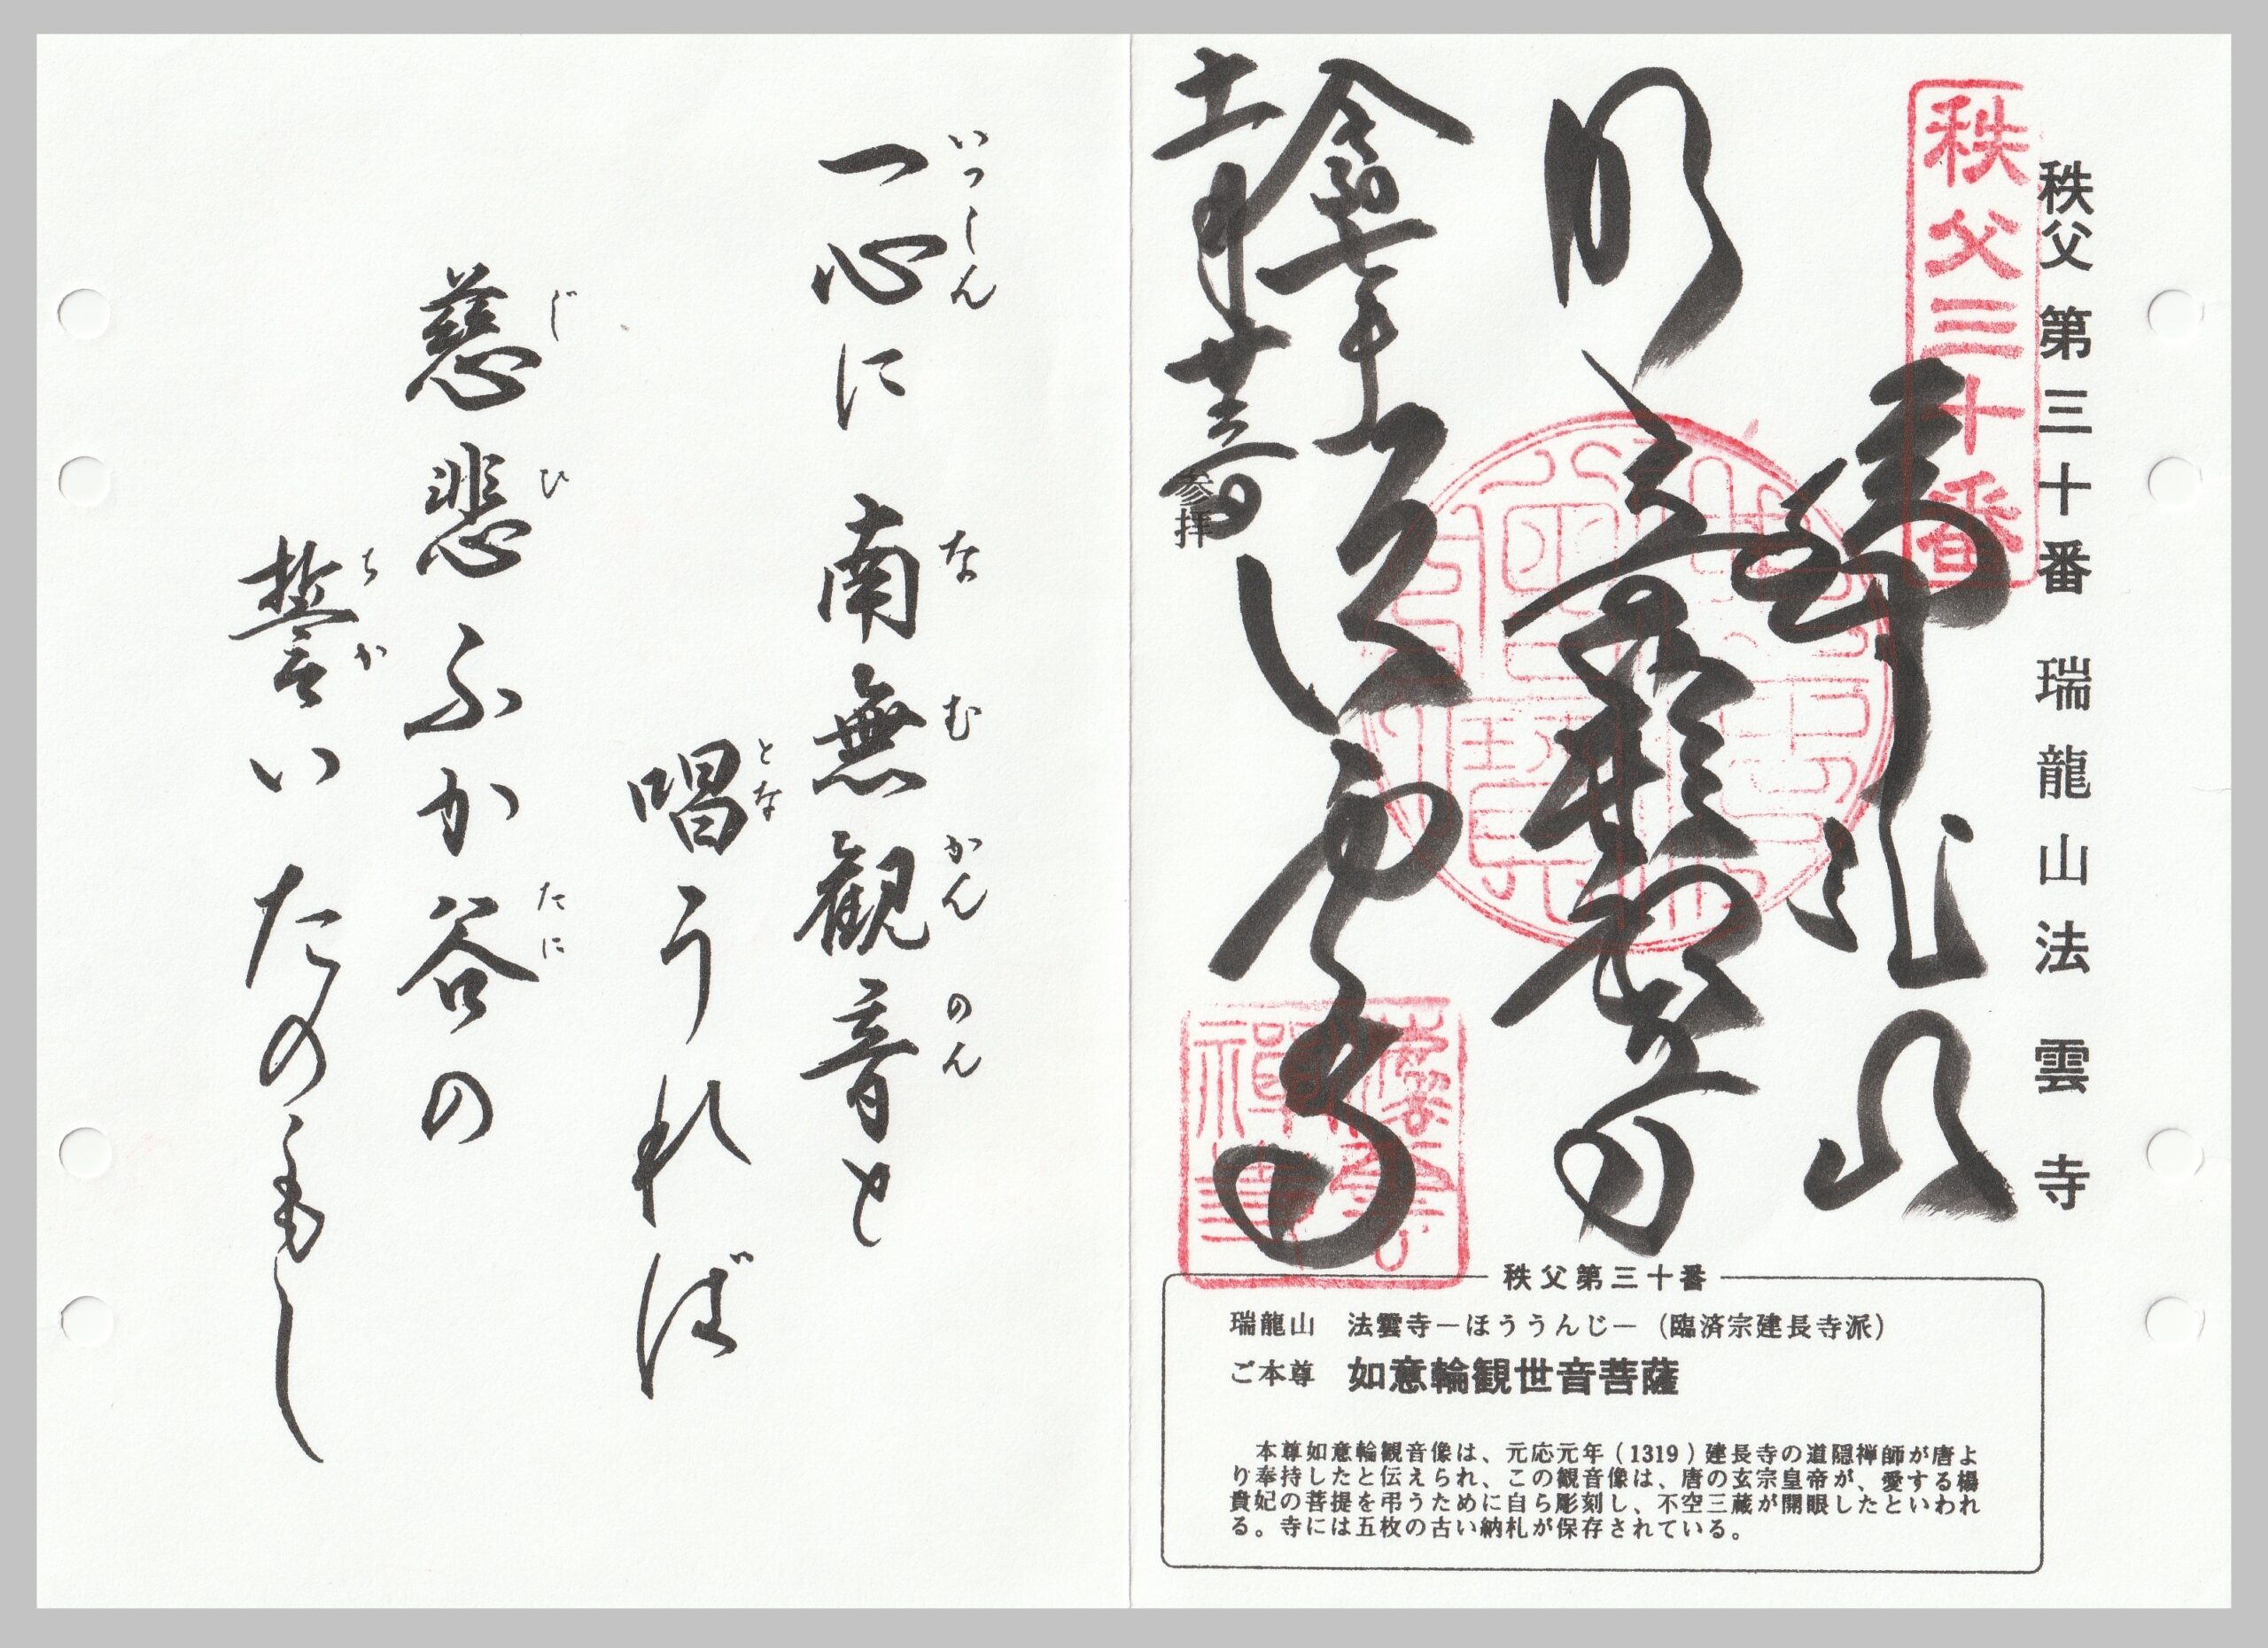 秩父 第三十番 瑞龍山法雲寺
秩父三十番
瑞龍山
令和七年
参拝
秩父第三十番
瑞龍山 法雲寺―ほううんじ―（臨済宗建長寺派）
ご本尊 如意輪観世音菩薩
本尊如意輪観音像は、元応元年（1319）建長寺の道隠禅師が唐よ
り奉持したと伝えられ、この観音像は、唐の玄宗皇帝が、愛する楊
貴妃の菩提を弔うために自ら彫刻し、不空三蔵が開眼したといわれ
る。寺には五枚の古い納札が保存されている。
いっしん なむかんのん
一心に南無観音と
とな
唱うれば
じひ たに
慈悲ふか谷の
ちか
誓いたのもし